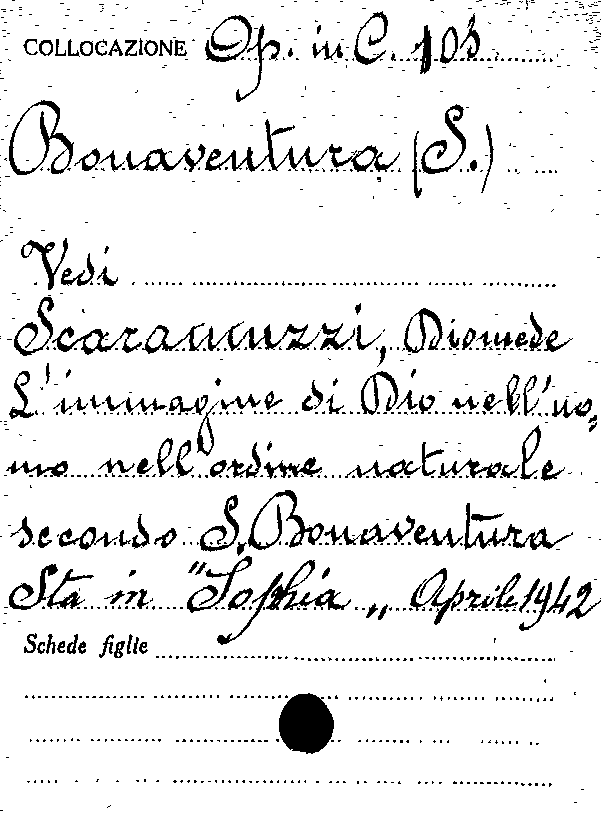 COLLOCAZIONE Op. in C. 103
Bonaventura (S.)
Vedi
Scaramuzzi, Diomede
L'immagine di Dio nell'uo=
mo nell'ordine naturale
secondo S. Bonaventura
Sta in "Sophia„ Aprile 1942
Schede figlie